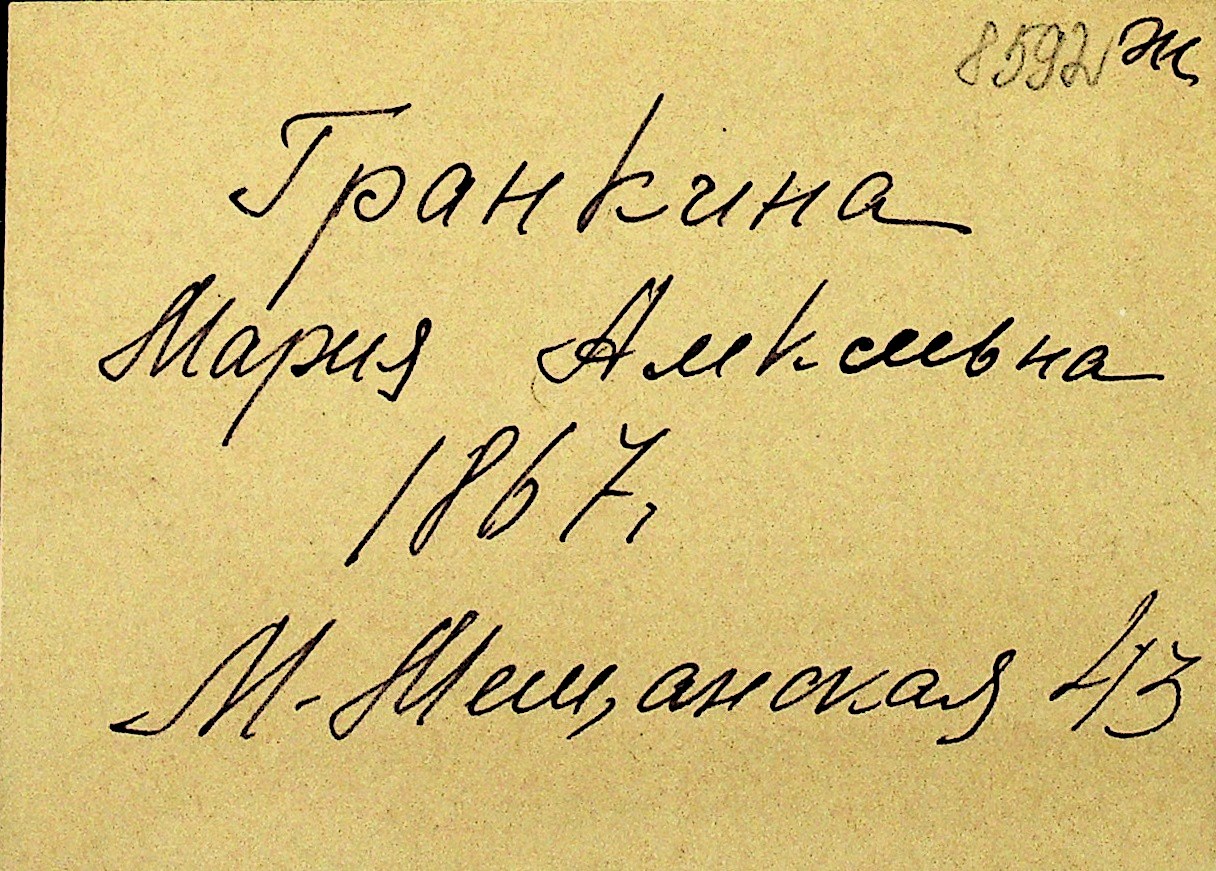 8592 ж
Гранкина
Мария Алексеевна
1867,
М-Мещанская 43